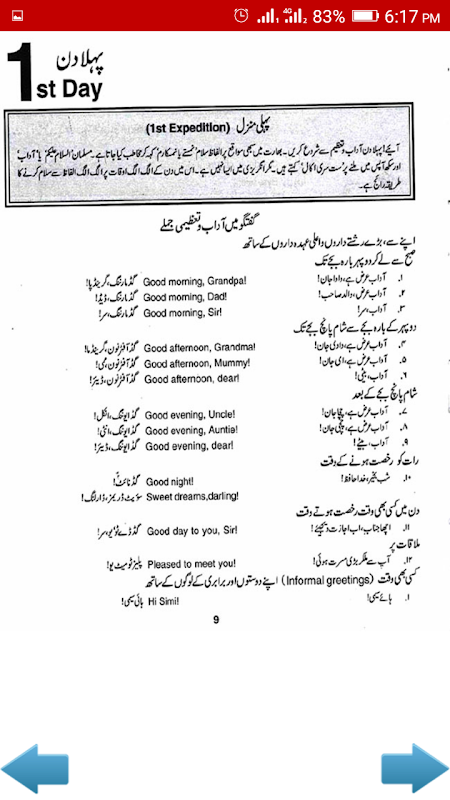 83% 6:17 PM
پہلا دن
1st Day
پہلی منزل (1st Expedition)
آیئے! پہلا دن آداب و تعظیم سے شروع کریں۔ بھارت میں سبھی مواقع پر الفاظ سلام، نمستے یا نمسکارم کہہ کر مخاطب کیا جاتا ہے۔ مسلمان 'السلام علیکم' یا 'آداب'
اور سکھ آپس میں ملنے پر 'ست سری اکال' کہتے ہیں۔ مگر انگریزی میں ایسا نہیں ہے۔ اس میں دن کے الگ الگ اوقات پر الگ الگ الفاظ سے سلام کرنے کا
طریقہ رائج ہے۔
گفتگو میں آداب و تعظیمی جملے
اپنے سے بڑے رشتے داروں و اعلیٰ عہدہ داروں کے ساتھ
صبح سے لے کر دوپہر بارہ بجے تک
۱۔ آداب عرض ہے، دادا جان! Good morning, Grandpa! گڈ مارننگ، گرینڈ پا!
۲۔ آداب عرض ہے، والد صاحب! Good morning, Dad! گڈ مارننگ، ڈیڈ!
۳۔ آداب، سر! Good morning, Sir! گڈ مارننگ، سر!
دوپہر کے بارہ بجے سے شام پانچ بجے تک
۴۔ آداب عرض ہے، دادی جان! Good afternoon, Grandma! گڈ آفٹر نون، گرینڈ ما!
۵۔ آداب عرض ہے، امی جان! Good afternoon, Mummy! گڈ آفٹر نون، ممی!
۶۔ آداب، بیٹی! Good afternoon, dear! گڈ آفٹر نون، ڈیئر!
شام پانچ بجے کے بعد
۷۔ آداب عرض ہے، چچا جان! Good evening, Uncle! گڈ ایوننگ، انکل!
۸۔ آداب عرض ہے، چچی جان! Good evening, Auntie! گڈ ایوننگ، آنٹی!
۹۔ آداب، بیٹے! Good evening, dear! گڈ ایوننگ، ڈیئر!
رات کو رخصت ہونے کے وقت
۱۰۔ شب بخیر، خدا حافظ! Good night! گڈ نائٹ!
Sweet dreams,darling! سویٹ ڈریمز، ڈارلنگ!
دن میں کسی بھی وقت رخصت ہوتے وقت
۱۱۔ اچھا جناب، اب اجازت دیجئے! Good day to you, Sir! گڈ ڈے ٹو یو، سر!
ملاقات پر
۱۲۔ آپ سے ملکر بڑی مسرت ہوئی! Pleased to meet you! پلیزڈ ٹو میٹ یو!
کسی بھی وقت (Informal greetings) اپنے دوستوں اور برابری کے لوگوں کے ساتھ
۱۔ ہائے سیمی! Hi Simi! ہائی سیمی!
9